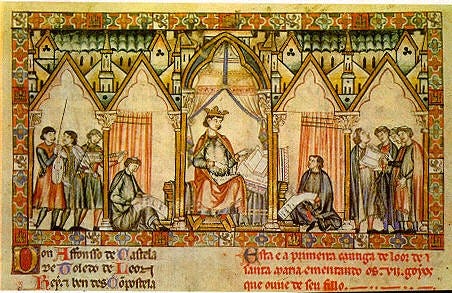 Don Affonso de Castela
de Toledo de Leon
Rey e ben des Conpostela
Esta e a primeira cantiga de loor de
santa maria ementando os. vii. goyos
que ouve de seu fillo.